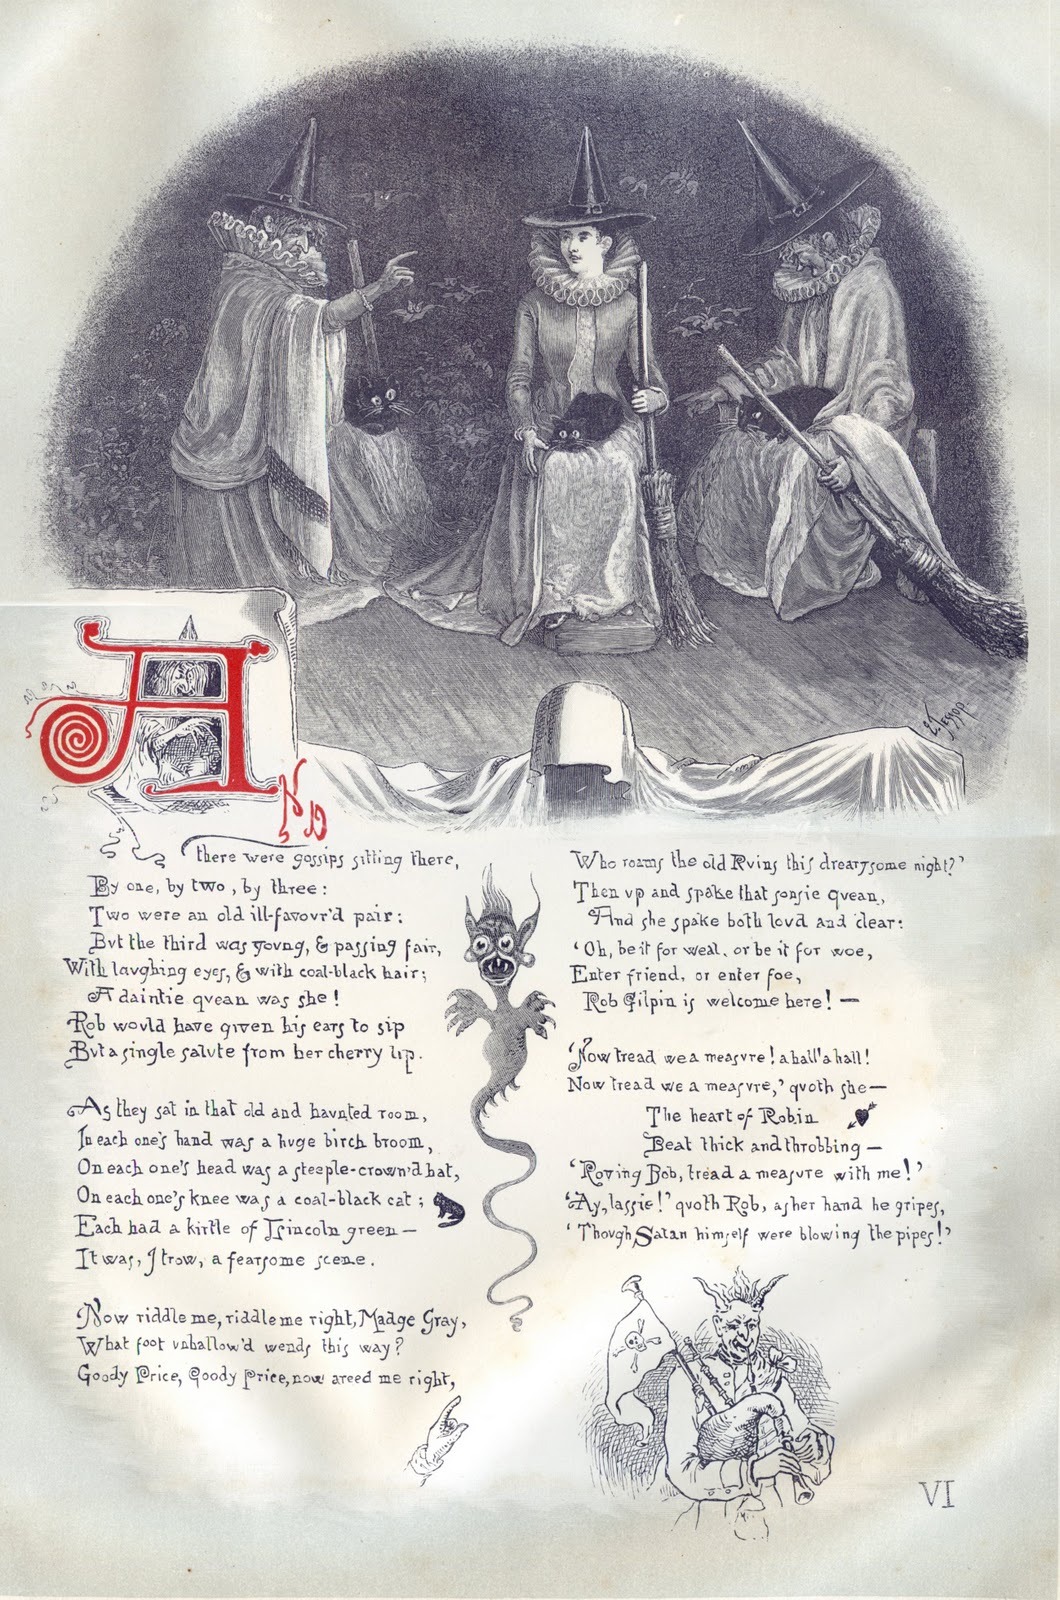 E. Jessop
AND
there were gossips sitting there,
By one, by two, by three:
Two were an old ill-favovr'd pair:
Bvt the third was yovng, & passing fair,
With lavghing eyes, & with coal-black hair;
A daintie qvean was she!
Rob wovld have given his ears to sip
Bvt a single salvte from her cherry lip.
As they sat in that old and havnted room,
In each one's hand was a hvge birch broom,
On each one's head was a steeple-crown'd hat,
On each one's knee was a coal-black cat;
Each had a kirtle of Lincoln green—
It was, I trow, a fearsome scene.
Now riddle me, riddle me right, Madge Gray,
What foot vnhallow'd wends this way?
Goody Price, Goody Price, now areed me right,
Who roams the old Rvins this drearysome night?'
Then vp and spake that sonsie qvean,
And she spake both lovd and clear:
'Oh, be it for weal, or be it for woe,
Enter friend, or enter foe,
Rob Gilpin is welcome here!—
'Now tread we a measvre! a hall! a hall!
Now tread we a measvre,' qvoth she—
The heart of Robin
Beat thick and throbbing—
'Roving Bob, tread a measvre with me!'
'Ay, lassie!' qvoth Rob, as her hand he gripes,
'Thovgh Satan himself were blowing the pipes!'
VI